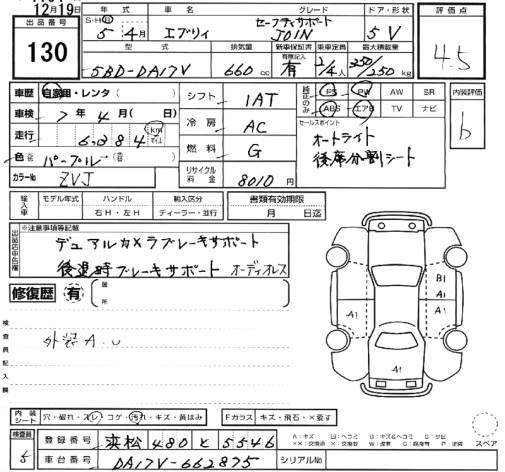 12月19日
出品番号 130
S・H・R 年式 5年 4月
車名 エブリイ
グレード セーフティサポート JOIN
ドア・形状 5V
評価点 4.5
型式 5BD-DA17V
排気量 660cc
新車保証書 有 有記入
乗車定員 2/4人
最大積載量 350/250kg
車歴 自家用・レンタ( )
車検 7年4月( 日)
走行 6,284 km マイル
色 パープル
カラーNo ZVJ
シフト 1AT
冷房 AC
燃料 G
リサイクル料金 8010円
純正のみ PS PW AW SR
ABS エアB TV ナビ
内装評価 b
セールスポイント
オートライト
後席分割シート
輸入車 モデル年式 ハンドル 右H・左H 輸入区分 ディーラー・並行
書類有効期限 月 日迄
出品店申告欄
※注意事項等記載
デュアルカメラブレーキサポート
後退時ブレーキサポート オーディオレス
修復歴 有 箇所
検査員記入欄
外装 A.U
A1
B1
A1
A1
A1
内装シート 穴・破れ・スレ コゲ・汚れ・キズ・黄ばみ
Fガラス キズ・飛石・×要す
検査員 5
登録番号 浜松 480 と 5546
車台番号 DA17V-662875
シリアルNo
スペア